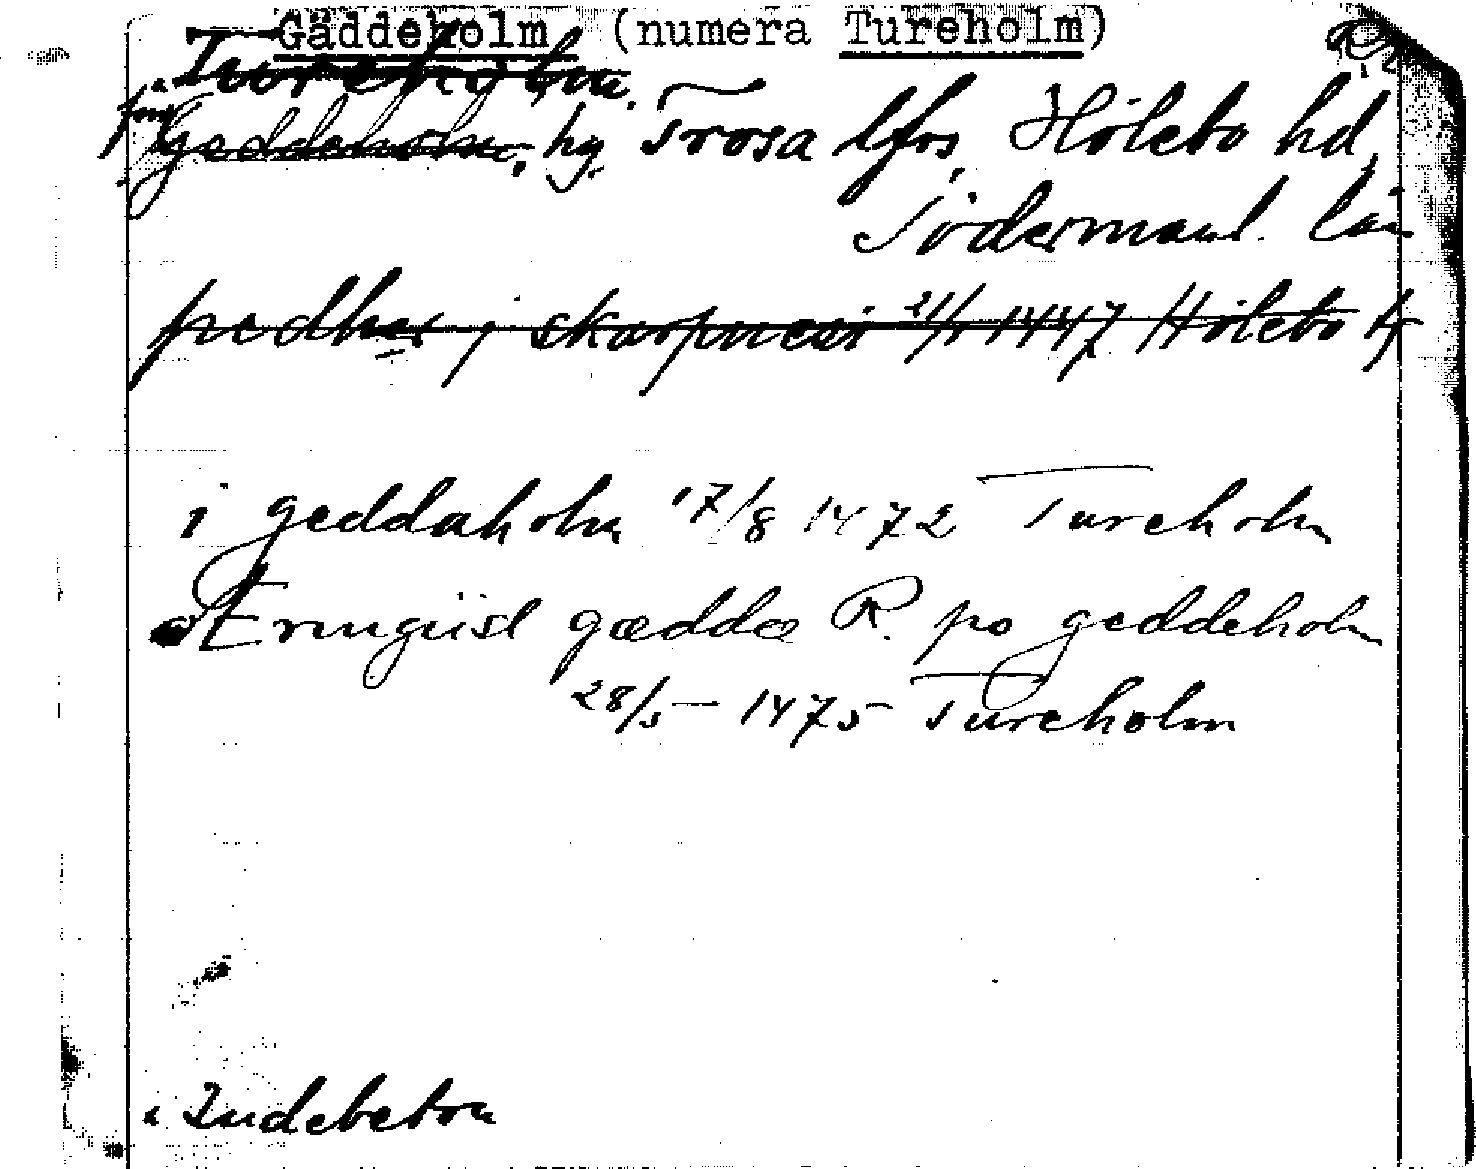 Gäddeholm (numera Tureholm)
Tureholm
Geddeholm, hg. Trosa lfs, Hölebo hd,
Södermanl. län
pædher j skarpnesi 21/1 1447 Hölebo
i geddaholm 17/8 1472 Tureholm
Erengiisl gædda R. po geddeholm
28/5 1475 Tureholm
Indebetou